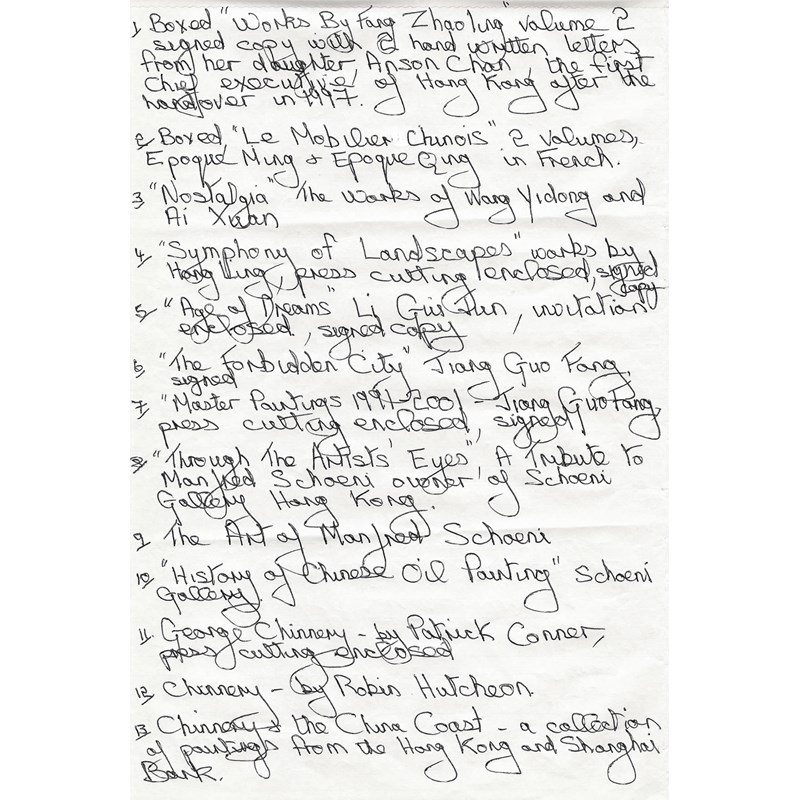 1, Boxed "Works By Fang Zhaoling" volume 2
signed copy with 2 hand written letters
from her daughter Anson Chan, the first
Chief executive of Hong Kong after the
handover in 1997.
2, Boxed "Le Mobilier Chinois" 2 volumes,
Epoque Ming & Epoque Qing in French.
3, "Nostalgia" The works of Wang Yidong and
Ai Xuan
4, "Symphony of Landscapes" works by
Hong Ling, press cutting enclosed, signed
copy
5, "Age of Dreams" Li Gui Jun, invitation
enclosed, signed copy
6, "The Forbidden City" Jiang Guo Fang,
signed
7, "Master Paintings 1991-2001 - Jiang Guo Fang,
press cutting enclosed, signed
8, "Through The Artists' Eyes", A Tribute to
Manfred Schoeni owner of Schoeni
Gallery Hong Kong.
9, The Art of Manfred Schoeni
10, "History of Chinese Oil Painting" Schoeni
Gallery.
11, George Chinnery - by Patrick Conner,
press cutting enclosed
12, Chinnery - by Robin Hutcheon.
13, Chinnery & the China Coast - a collection
of paintings from the Hong Kong and Shanghai
Bank.